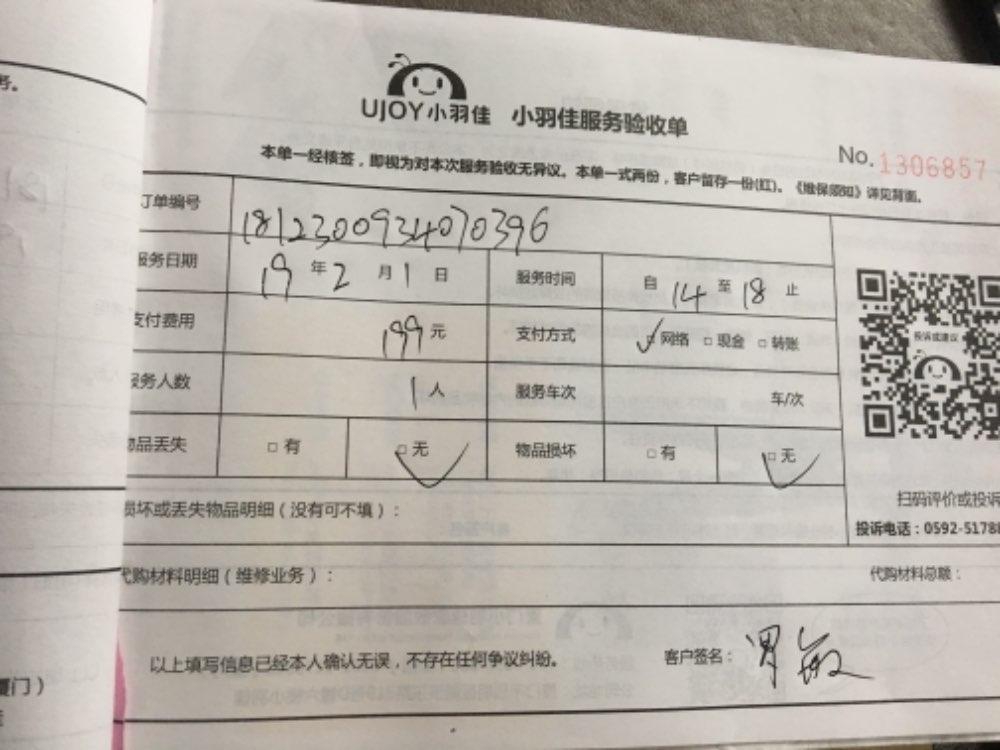 务。
UJOY小羽佳 小羽佳服务验收单
No. 1306857
本单一经核签，即视为对本次服务验收无异议。本单一式两份，客户留存一份(红)。《维保须知》详见背面。
订单编号 1812300934070396
服务日期 19 年 2 月 1 日 服务时间 自 14 至 18 止
支付费用 199 元 支付方式 □网络 □现金 □转账
服务人数 1 人 服务车次 车/次
物品丢失 □有 □无 物品损坏 □有 □无
投诉或建议
扫码评价或投诉
投诉电话：0592-5178
损坏或丢失物品明细（没有可不填）：
代购材料明细（维修业务）： 代购材料总额：
以上填写信息已经本人确认无误，不存在任何争议纠纷。 客户签名：
厦门）